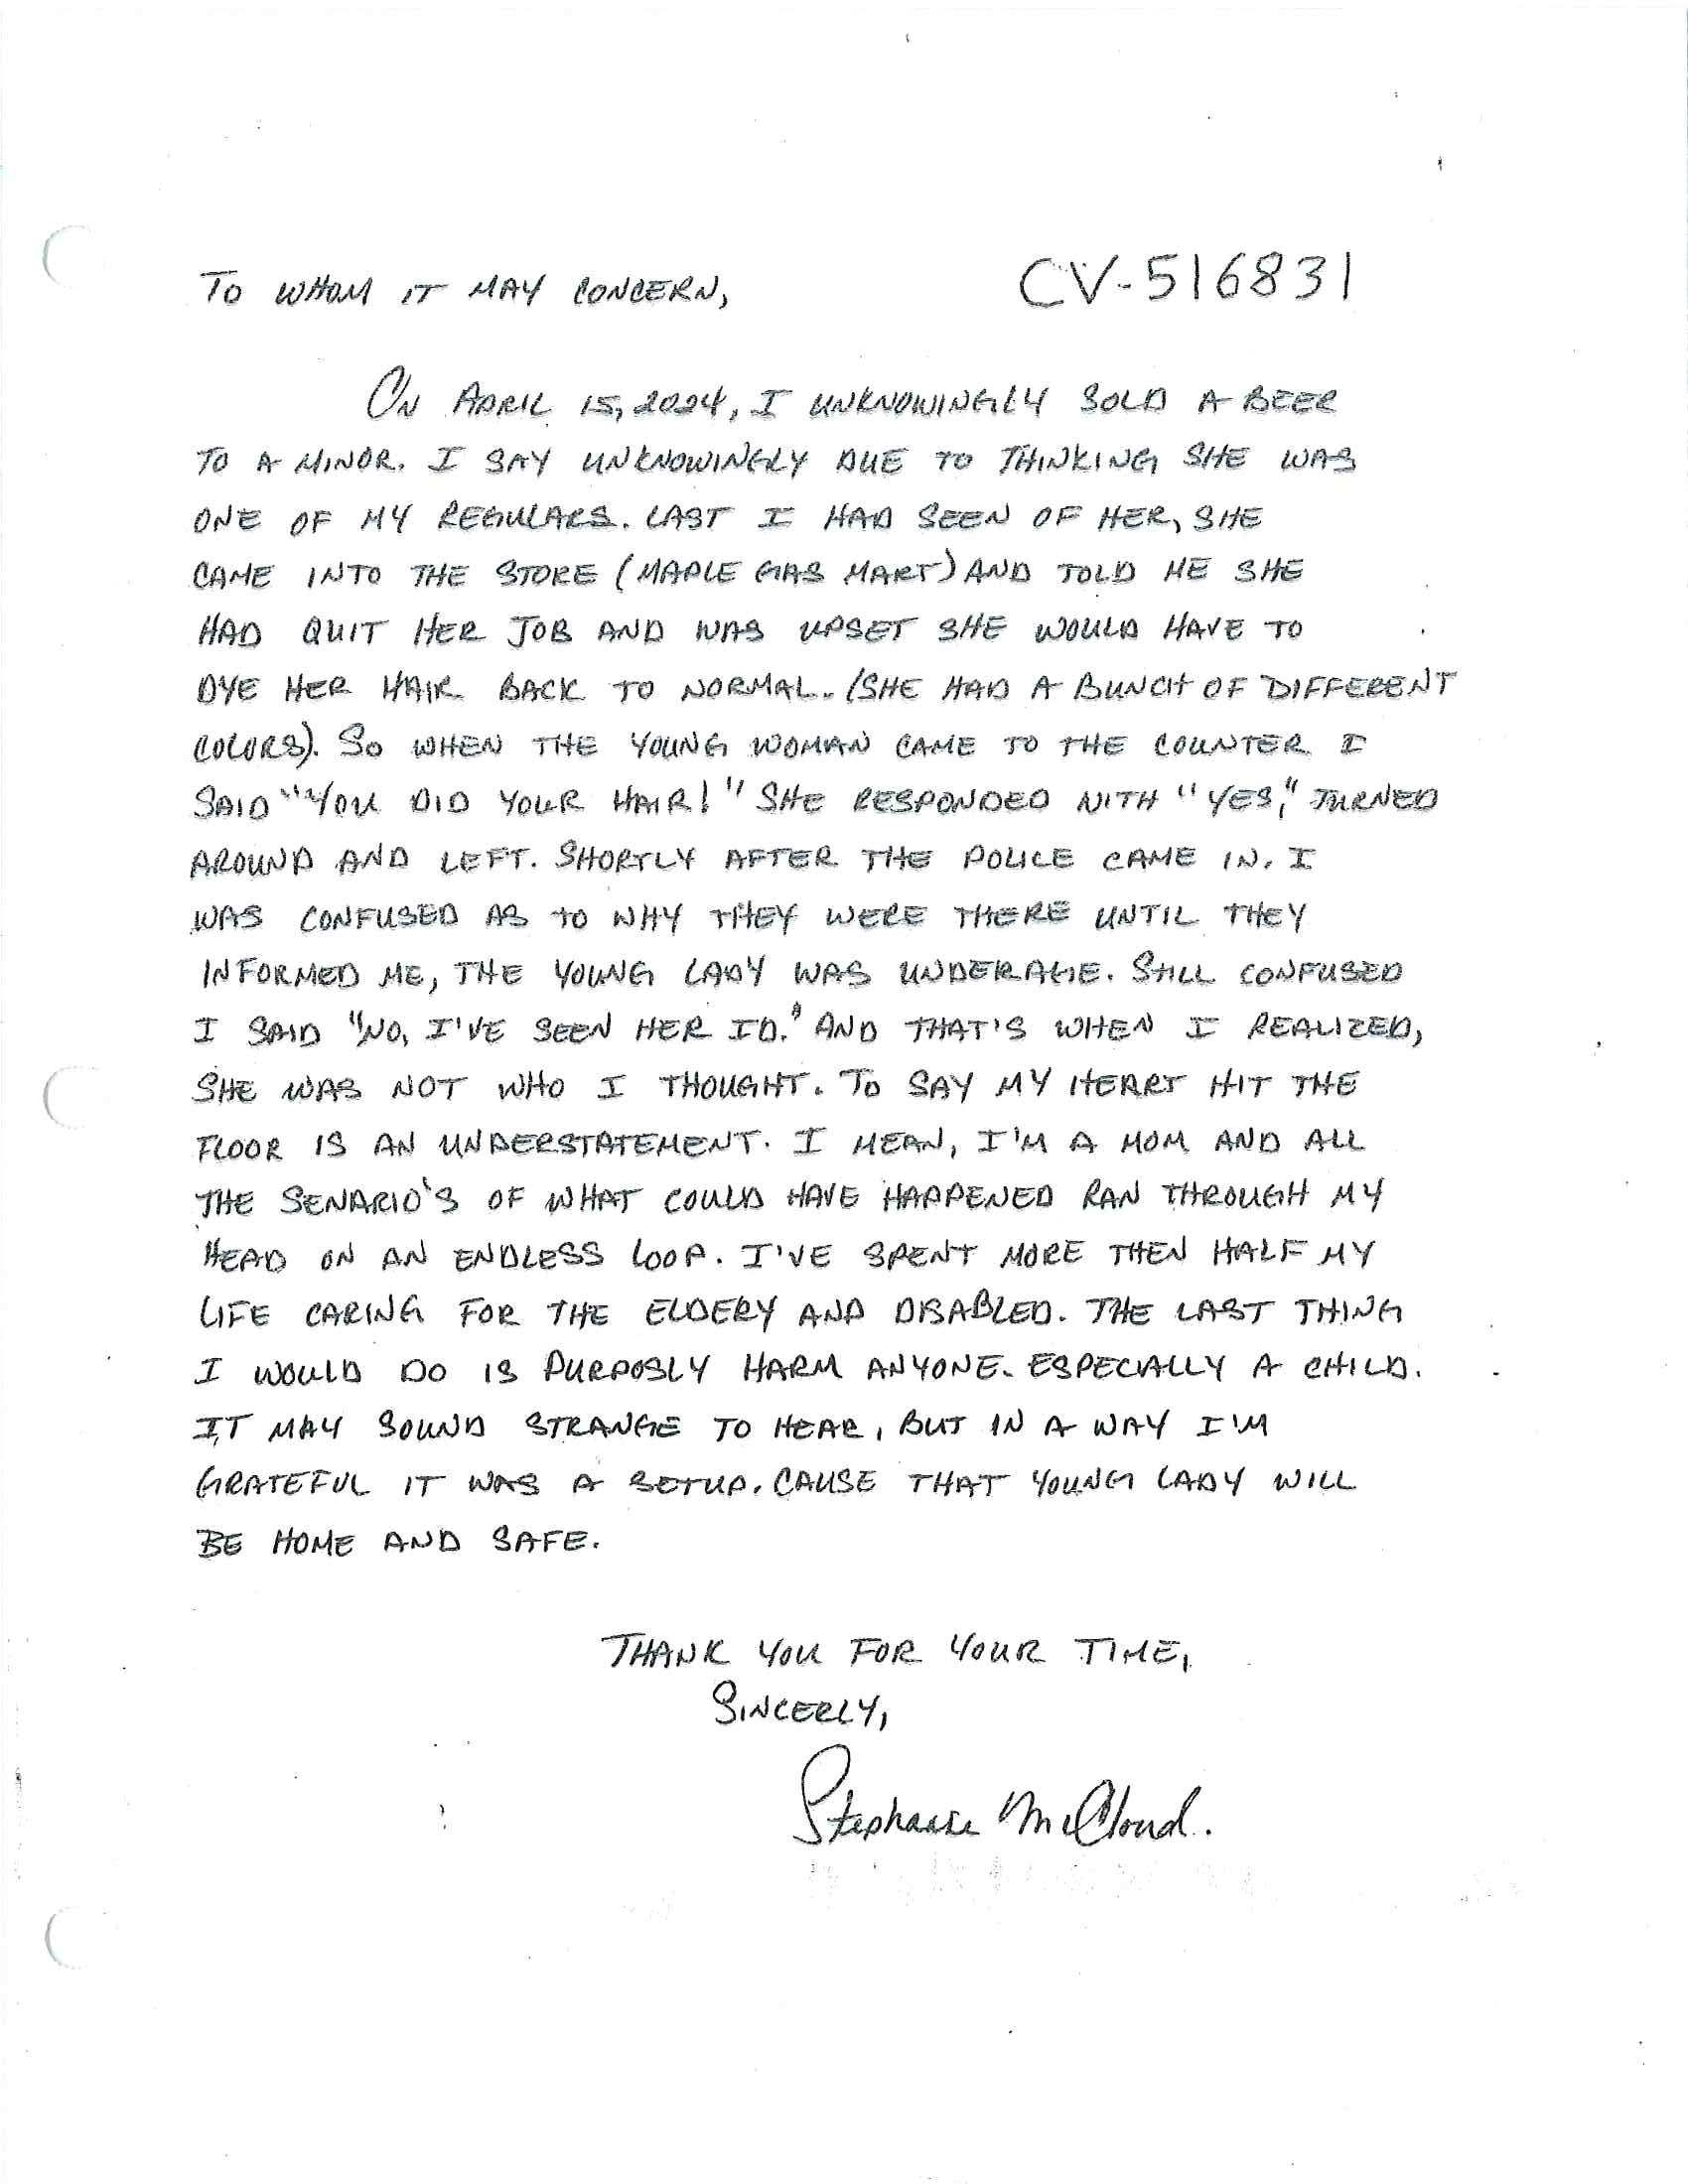 TO WHOM IT MAY CONCERN, CV-516831
ON APRIL 15, 2024, I UNKNOWINGLY SOLD A BEER
TO A MINOR. I SAY UNKNOWINGLY DUE TO THINKING SHE WAS
ONE OF MY REGULARS. LAST I HAD SEEN OF HER, SHE
CAME INTO THE STORE (MAPLE GAS MART) AND TOLD ME SHE
HAD QUIT HER JOB AND WAS UPSET SHE WOULD HAVE TO
DYE HER HAIR BACK TO NORMAL. (SHE HAD A BUNCH OF DIFFERENT
COLORS). SO WHEN THE YOUNG WOMAN CAME TO THE COUNTER I
SAID "YOU DID YOUR HAIR!" SHE RESPONDED WITH "YES," TURNED
AROUND AND LEFT. SHORTLY AFTER THE POLICE CAME IN. I
WAS CONFUSED AS TO WHY THEY WERE THERE UNTIL THEY
INFORMED ME, THE YOUNG LADY WAS UNDERAGE. STILL CONFUSED
I SAID "NO, I'VE SEEN HER ID." AND THAT'S WHEN I REALIZED,
SHE WAS NOT WHO I THOUGHT. TO SAY MY HEART HIT THE
FLOOR IS AN UNDERSTATEMENT. I MEAN, I'M A MOM AND ALL
THE SENARIO'S OF WHAT COULD HAVE HAPPENED RAN THROUGH MY
HEAD ON AN ENDLESS LOOP. I'VE SPENT MORE THEN HALF MY
LIFE CARING FOR THE ELDERY AND DISABLED. THE LAST THING
I WOULD DO IS PURPOSLY HARM ANYONE. ESPECIALLY A CHILD.
IT MAY SOUND STRANGE TO HEAR, BUT IN A WAY I'M
GRATEFUL IT WAS A SETUP. CAUSE THAT YOUNG LADY WILL
BE HOME AND SAFE.
THANK YOU FOR YOUR TIME,
SINCERLY,
Stephanie McCloud.